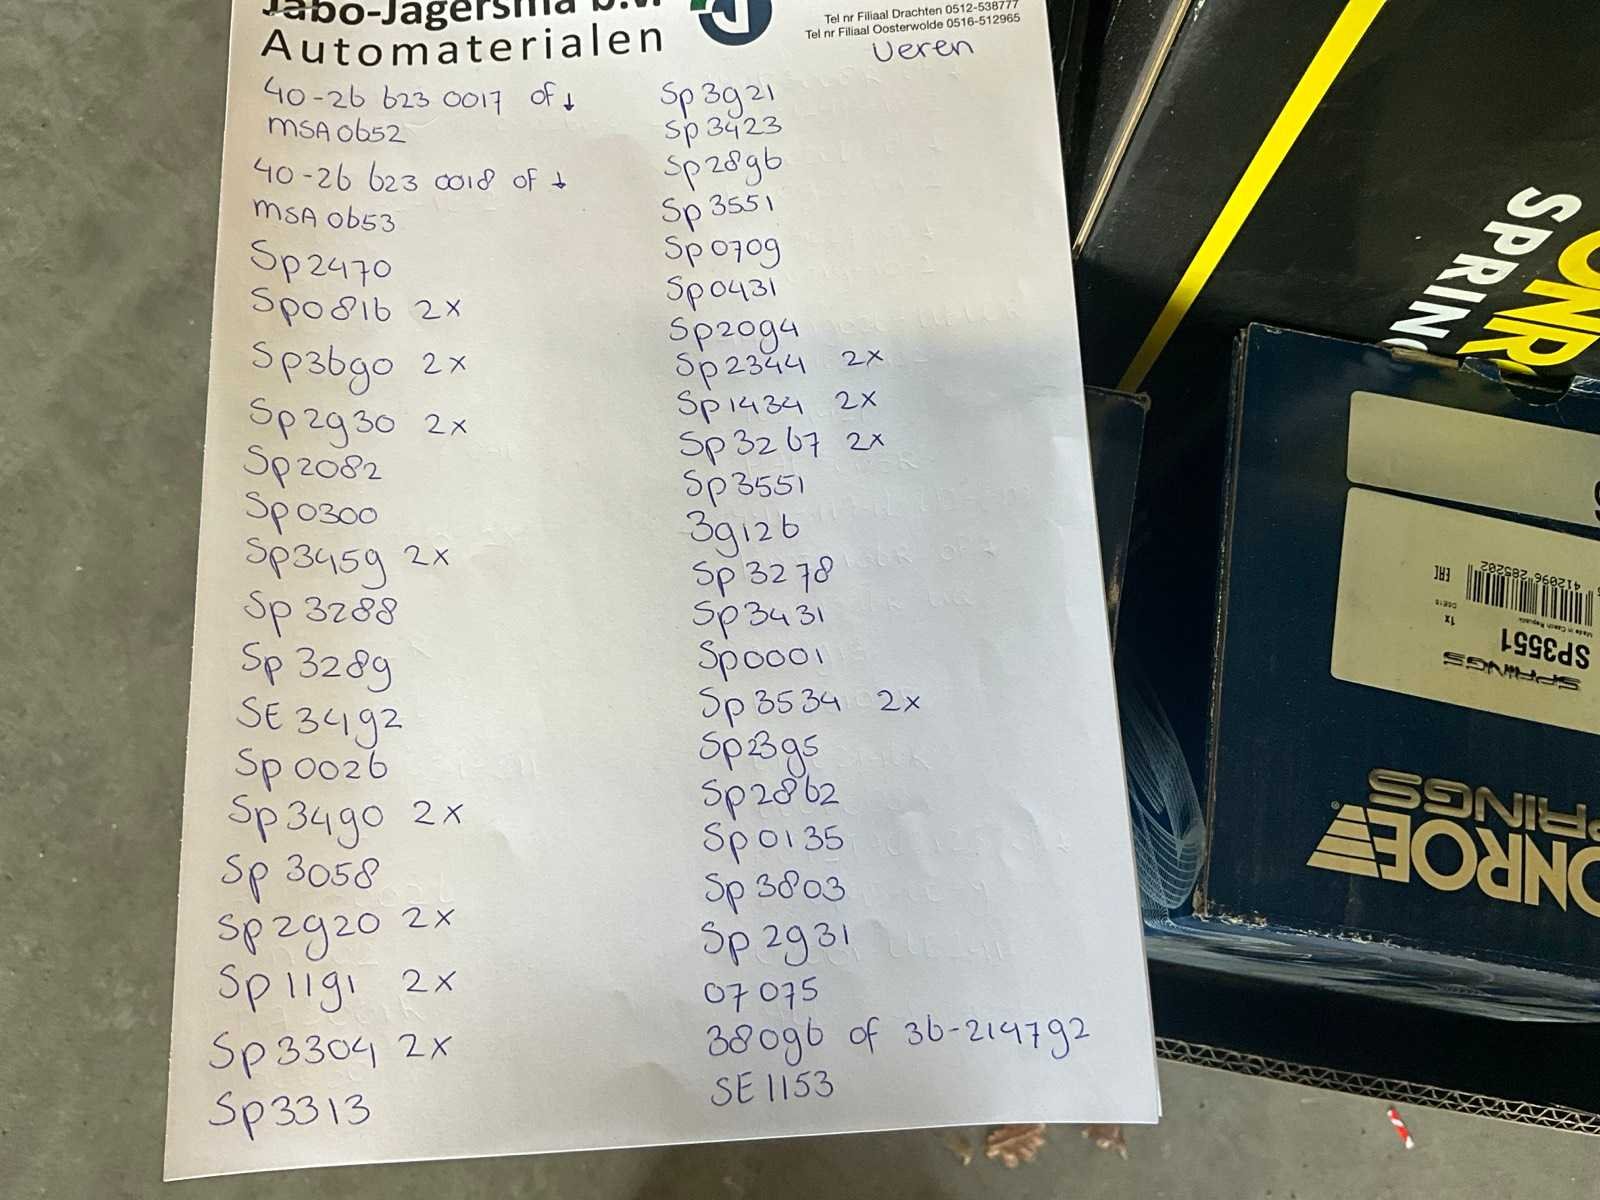 Jabo-Jagersma b.v.
Automaterialen
Tel nr Filiaal Drachten 0512-538777
Tel nr Filiaal Oosterwolde 0516-512965
Veren
40-26 623 0017 of ↓
MSA0652
40-26 623 0018 of ↓
MSA0653
Sp2470
Sp0816 2x
Sp3690 2x
Sp2930 2x
Sp2082
Sp0300
Sp3459 2x
Sp3288
Sp3289
SE3492
Sp0026
Sp3490 2x
Sp3058
Sp2920 2x
Sp1191 2x
Sp3304 2x
Sp3313
Sp3921
Sp3423
Sp2896
Sp3551
Sp0709
Sp0431
Sp2094
Sp2344 2x
Sp1434 2x
Sp3267 2x
Sp3551
39126
Sp3278
Sp3431
Sp0001
Sp3534 2x
Sp2395
Sp2862
Sp0135
Sp3803
Sp2931
07075
38096 of 36-214792
SE1153
SPRING
ONR
412096 285202
EAC
1x
Made in Czech Republic
SP3551
SPRINGS
ONROE®
PRINGS